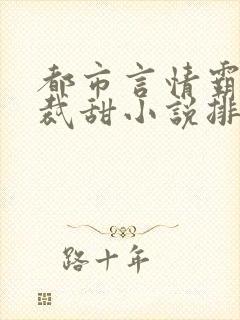 都市言情霸
裁甜小說排
路十年